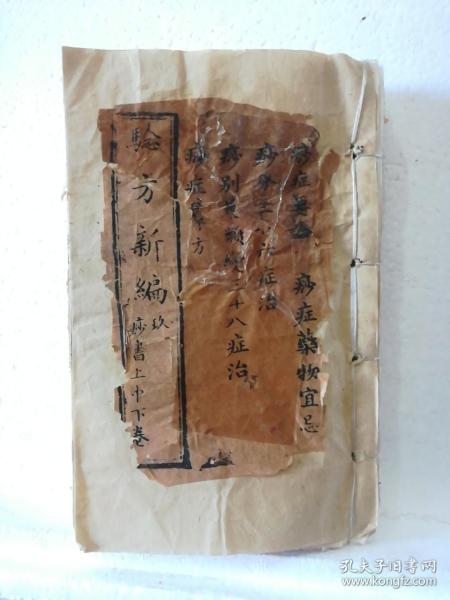 痧症要 痧症藥物宜忌
痧分六症治
痧別三十八症治
痧症方
驗方新編
玖
痧書上中下卷
孔夫子旧书网
www.kongfz.com